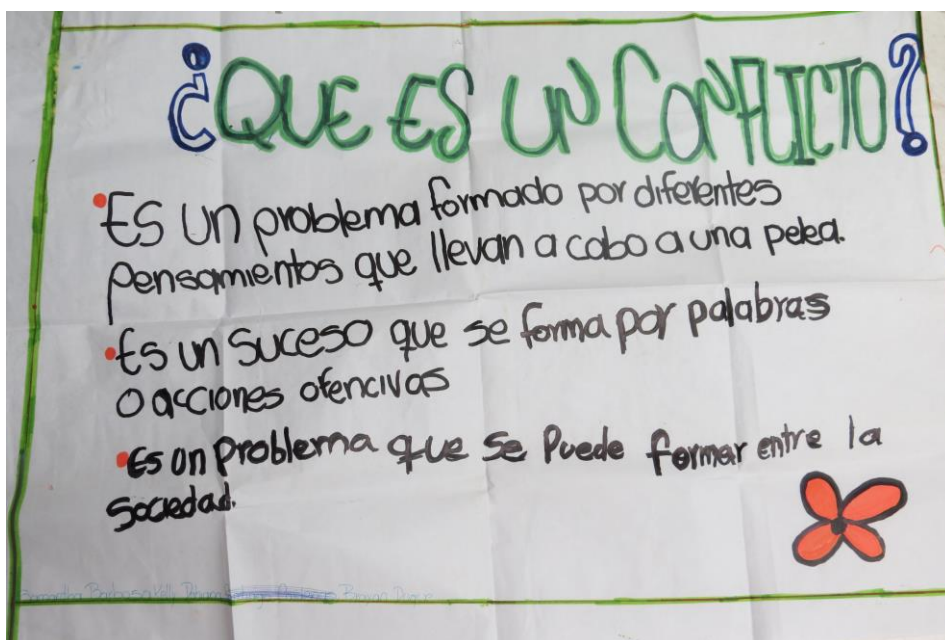 ¿QUE ES UN CONFLICTO?
•ES UN problema formado por diferentes
pensamientos que llevan a cabo a una pelea.
•Es un suceso que se forma por palabras
O acciones ofencivas
•Es un problema que se puede formar entre la
sociedad.
Samantha Barbosa